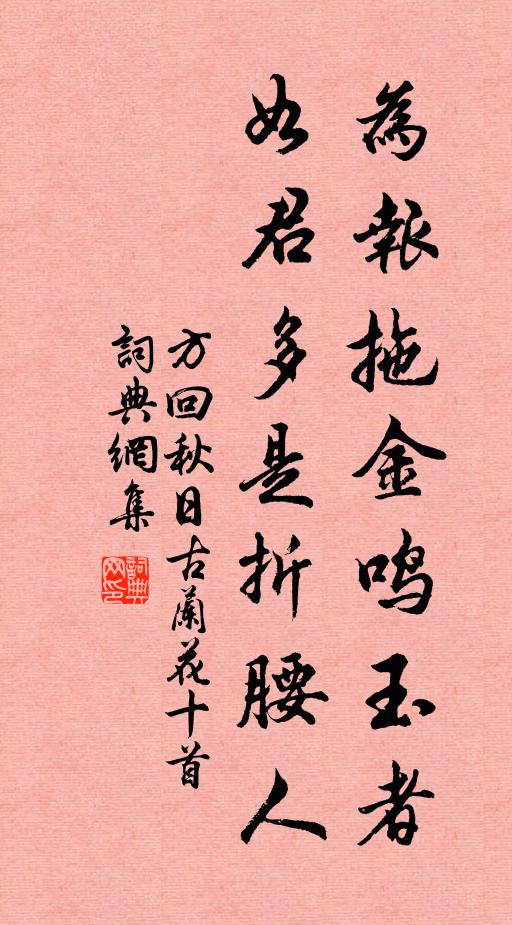 為報拖金鳴玉者
如君多是折腰人
方回秋日古蘭花十首
詞典網集
詞典网印